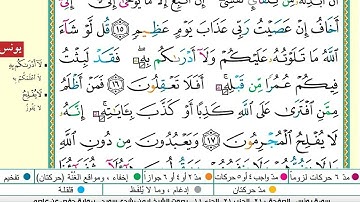 أَخَافُ إِنْ عَصَيْتُ رَبِّى عَذَابَ يَوْمٍ عَظِيمٍ ١٥ قُل لَّوْ شَآءَ
ٱللَّهُ مَا تَلَوْتُهُۥ عَلَيْكُمْ وَلَآ أَدْرَىٰكُم بِهِۦ فَقَدْ لَبِثْتُ
فِيكُمْ عُمُرًا مِّن قَبْلِهِۦٓ أَفَلَا تَعْقِلُونَ ١٦ فَمَنْ أَظْلَمُ
مِمَّنِ ٱفْتَرَىٰ عَلَى ٱللَّهِ كَذِبًا أَوْ كَذَّبَ بِـَٔايَـٰتِهِۦٓ إِنَّهُۥ
لَا يُفْلِحُ ٱلْمُجْرِمُونَ ١٧ وَيَعْبُدُونَ مِن دُونِ ٱللَّهِ
يونس
لَا يُفْلِحُ
مدّ ٦ حركات لزوماً
مدّ ٢ أو ٤ أو ٦ جوازاً
إخفاء ، ومواقع الغُنَّة (حركتان)
تفخيم
مدّ حركتان
إدغام ، وما لا يُلفَظ
قلقلة